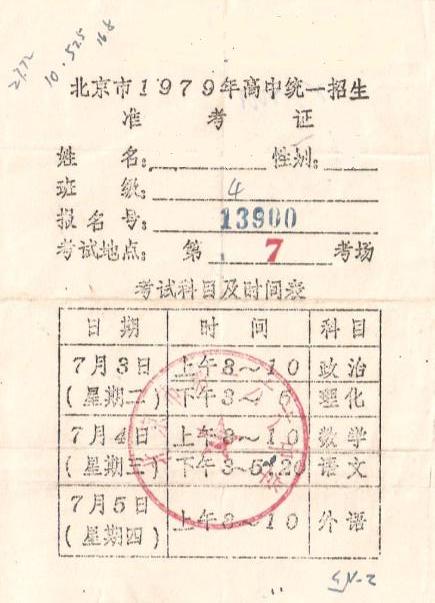 10.525
北京市1979年高中统一招生
准考证
姓名:
性别:
班级: 4
报名号: 13900
考试地点: 第 7 考场
考试科目及时间表
日期 时间 科目
7月3日 上午8~10 政治
(星期二) 下午3~ 理化
7月4日 上午8~10 数学
(星期三) 下午3~5.20 语文
7月5日
(星期四) 上午8~10 外语